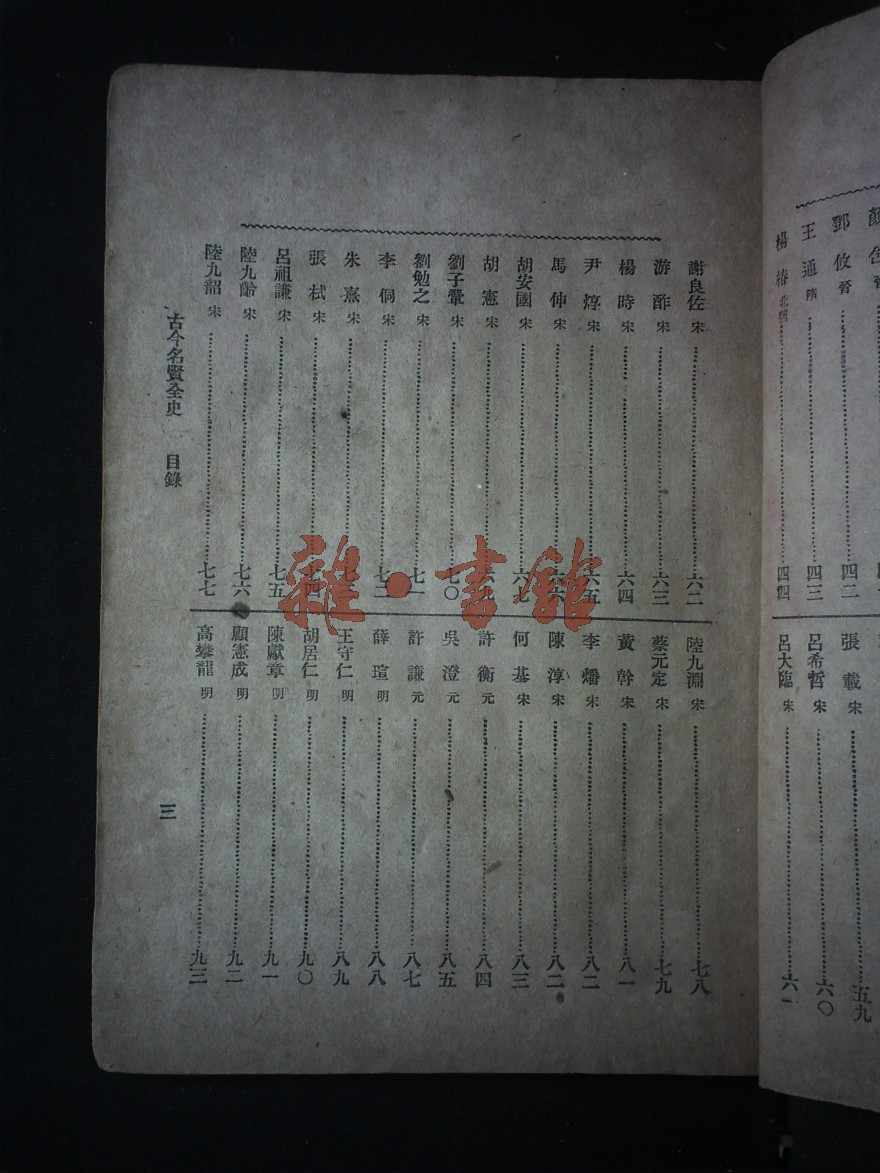 鄧攸 晉………四二
王通 隋………四三
楊椿 北魏………四四
張載 宋………五九
呂希哲 宋………六〇
呂大臨 宋………六一
謝良佐 宋………六二
游酢 宋………六三
楊時 宋………六四
尹焞 宋………六五
馬伸 宋………六六
胡安國 宋………六七
胡憲 宋………六九
劉子翬 宋………七〇
劉勉之 宋………七一
李侗 宋………七二
朱熹 宋………七三
張栻 宋………七四
呂祖謙 宋………七五
陸九齡 宋………七六
陸九韶 宋………七七
陸九淵 宋………七八
蔡元定 宋………七九
黃幹 宋………八一
李燔 宋………八二
陳淳 宋………八二
何基 宋………八三
許衡 元………八四
吳澄 元………八五
許謙 元………八七
薛瑄 明………八八
王守仁 明………八九
胡居仁 明………九〇
陳獻章 明………九一
顧憲成 明………九二
高攀龍 明………九三
古今名賢全史 目錄
三
雜·書館